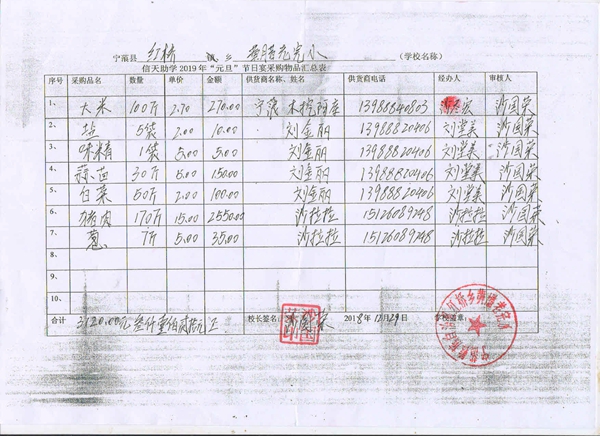 宁蒗县 红桥 镇 乡 完小 (学校名称)
信天助学 2019 年“元旦”节日宴采购物品汇总表
序号 采购品名 数量 单价 金额 供货商名称、姓名 供货商电话 经办人 审核人
1、 大米 100斤 2.70 270.00 宁蒗 13988840803 沙国荣
2、 盐 5袋 2.00 10.00 刘金丽 13988820406 刘堂美 沙国荣
3、 味精 1袋 5.00 5.00 刘金丽 13988820406 刘堂美 沙国荣
4、 蒜苗 30斤 5.00 150.00 刘金丽 13988820406 刘堂美 沙国荣
5、 白菜 50斤 2.00 100.00 刘金丽 13988820406 刘堂美 沙国荣
6、 猪肉 170斤 15.00 2550.00 沙拉拉 15126089248 沙拉拉 沙国荣
7、 葱 7斤 5.00 35.00 沙拉拉 15126089248 沙拉拉 沙国荣
8、
9、
10、
合计 3120.00元 叁仟壹佰贰拾元正 校长签名: 沙国荣 2018年12月29日 学校盖章: